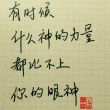 有时候
什么神的力量
都比不上
你的眼神